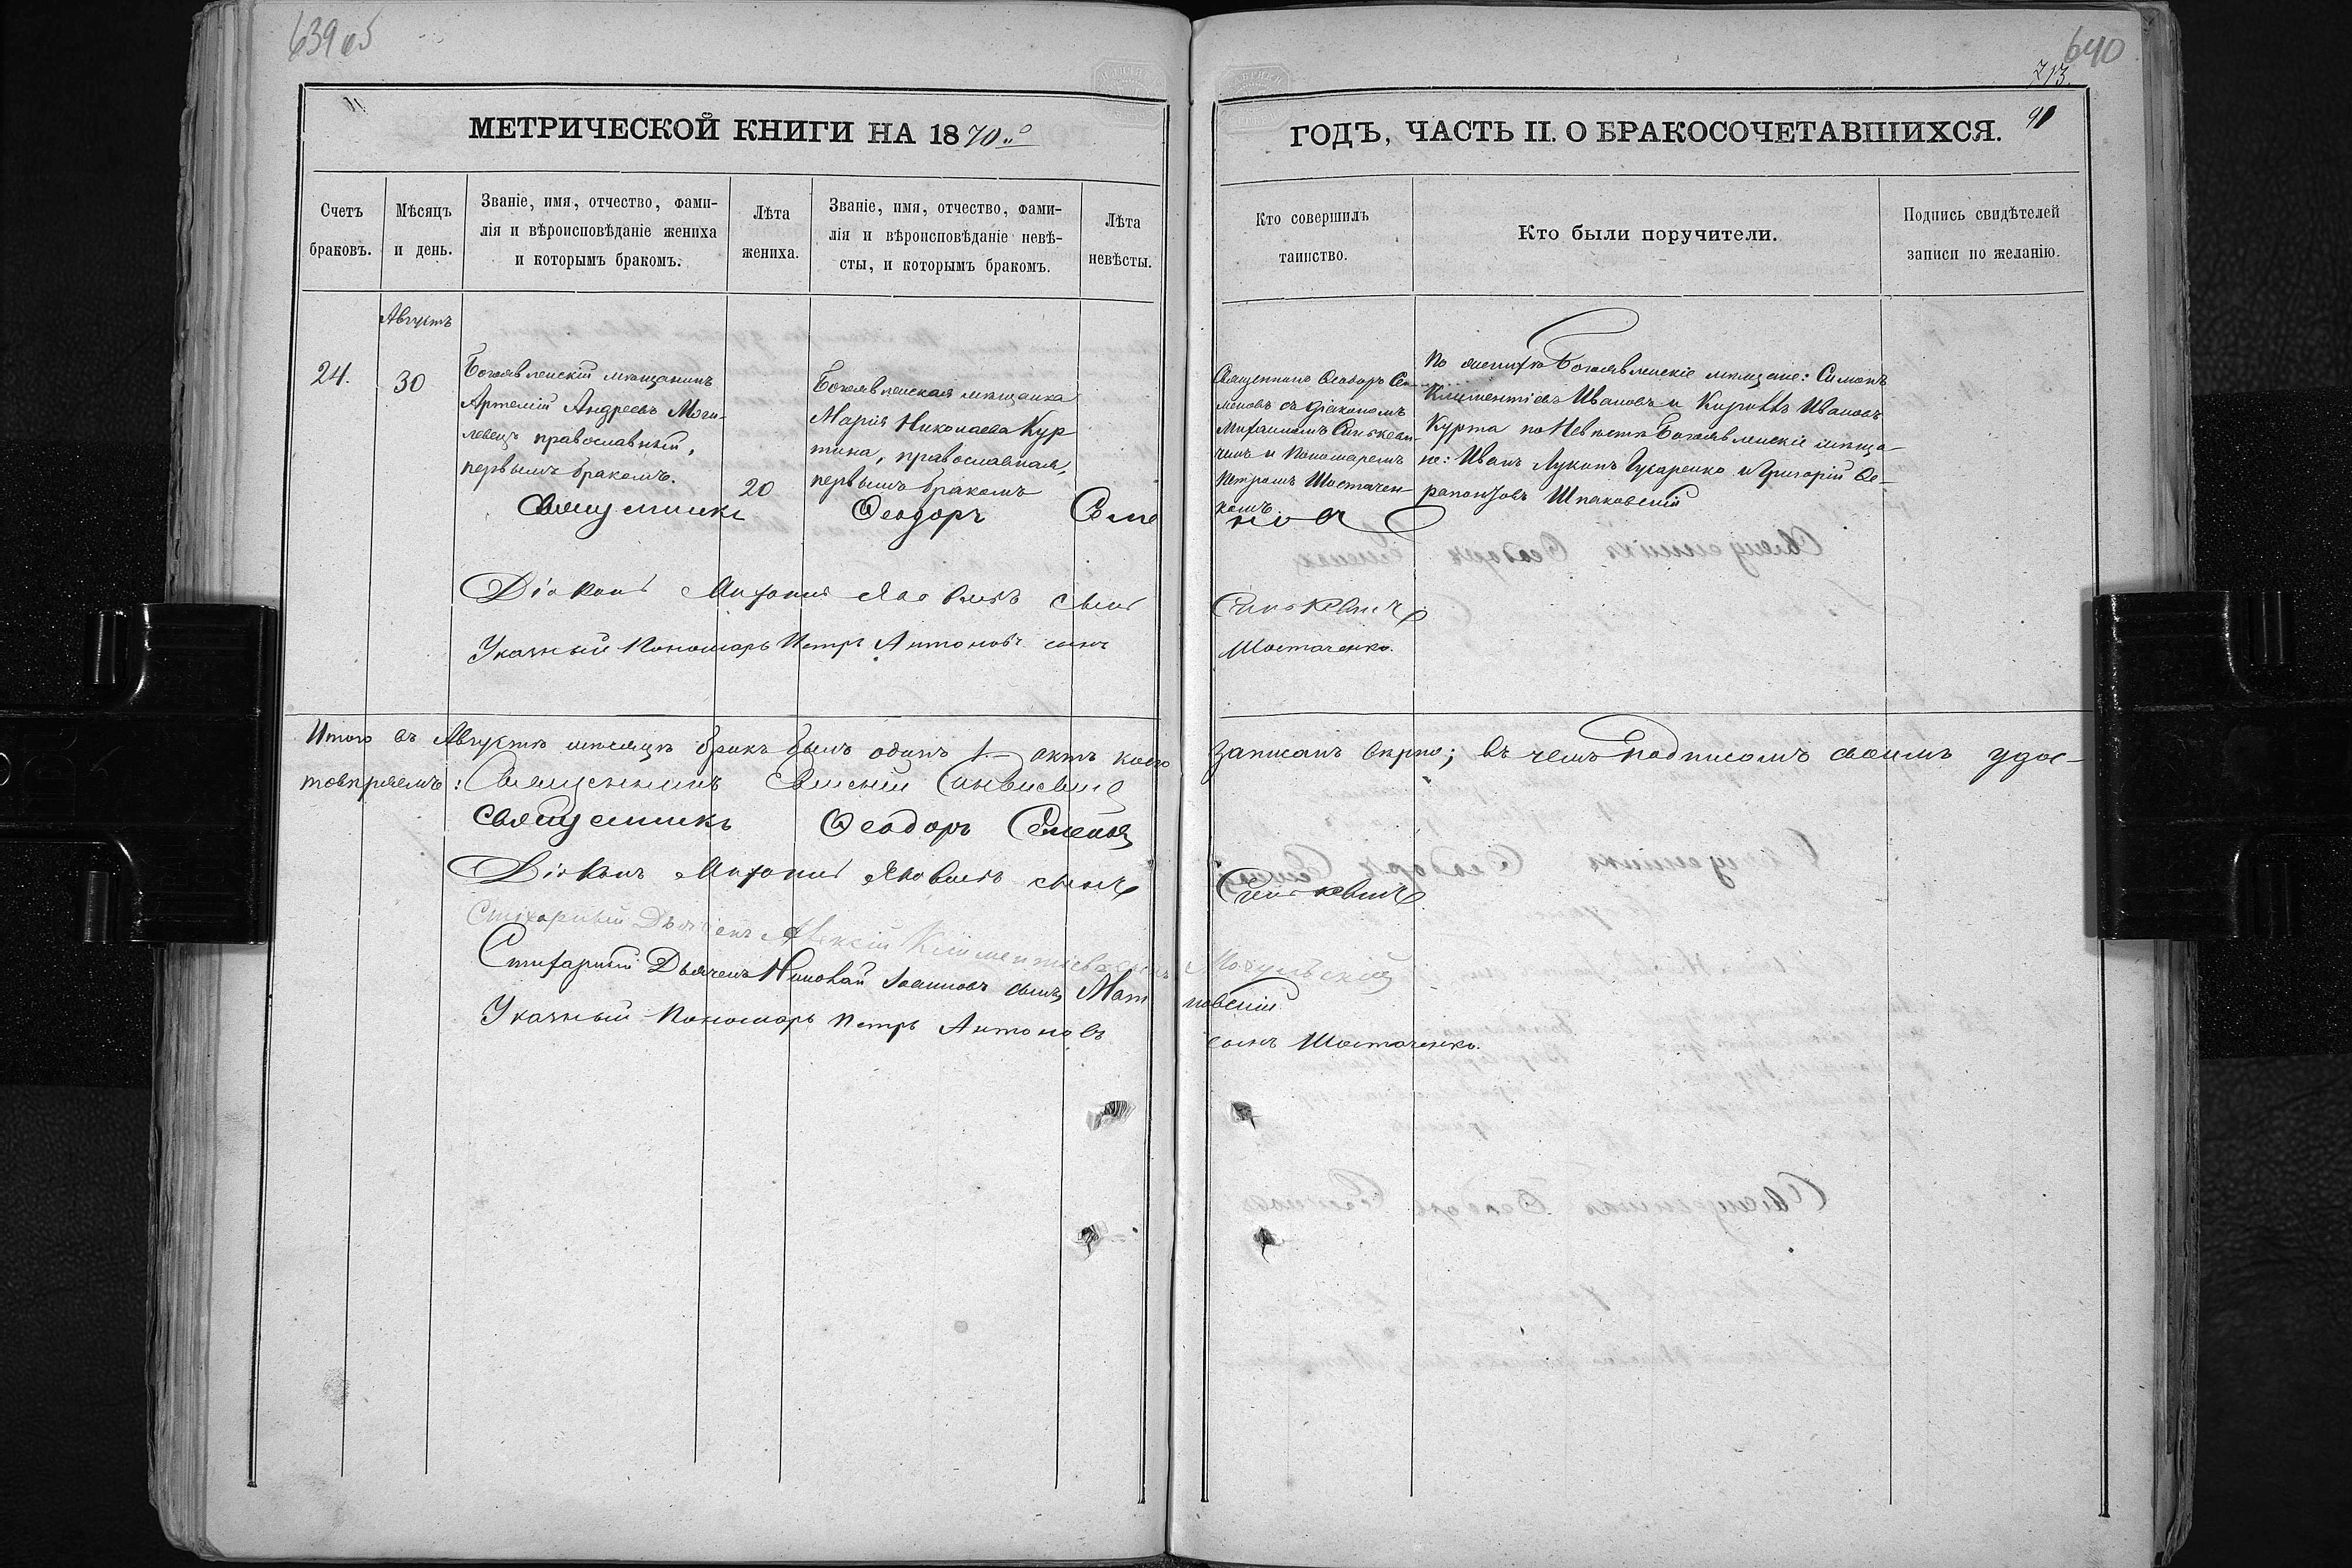 639 об
640
713.
91
МЕТРИЧЕСКОЙ КНИГИ НА 1870.й
ГОДЪ, ЧАСТЬ II. О БРАКОСОЧЕТАВШИХСЯ.
Счетъ
браковъ.
Мѣсяцъ
и день.
Званіе, имя, отчество, фами-
лія и вѣроисповѣданіе жениха
и которымъ бракомъ.
Лѣта
жениха.
Званіе, имя, отчество, фами-
лія и вѣроисповѣданіе невѣ-
сты, и которымъ бракомъ.
Лѣта
невѣсты.
Кто совершилъ
таинство.
Кто были поручители.
Подпись свидѣтелей
записи по желанію.
Августъ
24.
30
Богоявленскій мѣщанинъ
Артемій Андреевъ Моги-
левецъ православный,
первымъ бракомъ.
20
Богоявленская мѣщанка
Марія Николаева Кур
тина, православная,
первымъ бракомъ
Священникъ Ѳеодоръ Се-
меновъ съ діакономъ
Синькеви-
чемъ и Пономаремъ
Петромъ Шостачен-
комъ.
По женихѣ Богоявленскіе мѣщане: Симонъ
Климентіевъ Ивановъ и Кириллъ Ивановъ
Курта по Невѣстѣ Богоявленскіе мѣща-
не: Иванъ Лукинъ Гусаренко и Григорій Ѳе-
рапонтовъ Шпаковскій
Священникъ Ѳеодоръ Семе
новъ
Діаконъ Яковлевъ сынъ Синькевичъ
Указный Пономарь Петръ Антоновъ сынъ Шостаченко.
Итого въ Августѣ мѣсяцѣ бракъ былъ одинъ 1.— актъ коего записанъ вѣрно; въ чемъ подписомъ своимъ удос-
товѣряемъ: Священникъ Синькевичъ
Священникъ Ѳеодоръ Семеновъ
Діаконъ Яковлевъ сынъ Синькевичъ
Стихарный Дьячекъ Алексій Климентіевъ сынъ
Стихарный Дьячекъ Николай Іоанновъ сынъ Мат
новскій
Указный Пономарь Петръ Антоновъ сынъ Шостаченко.